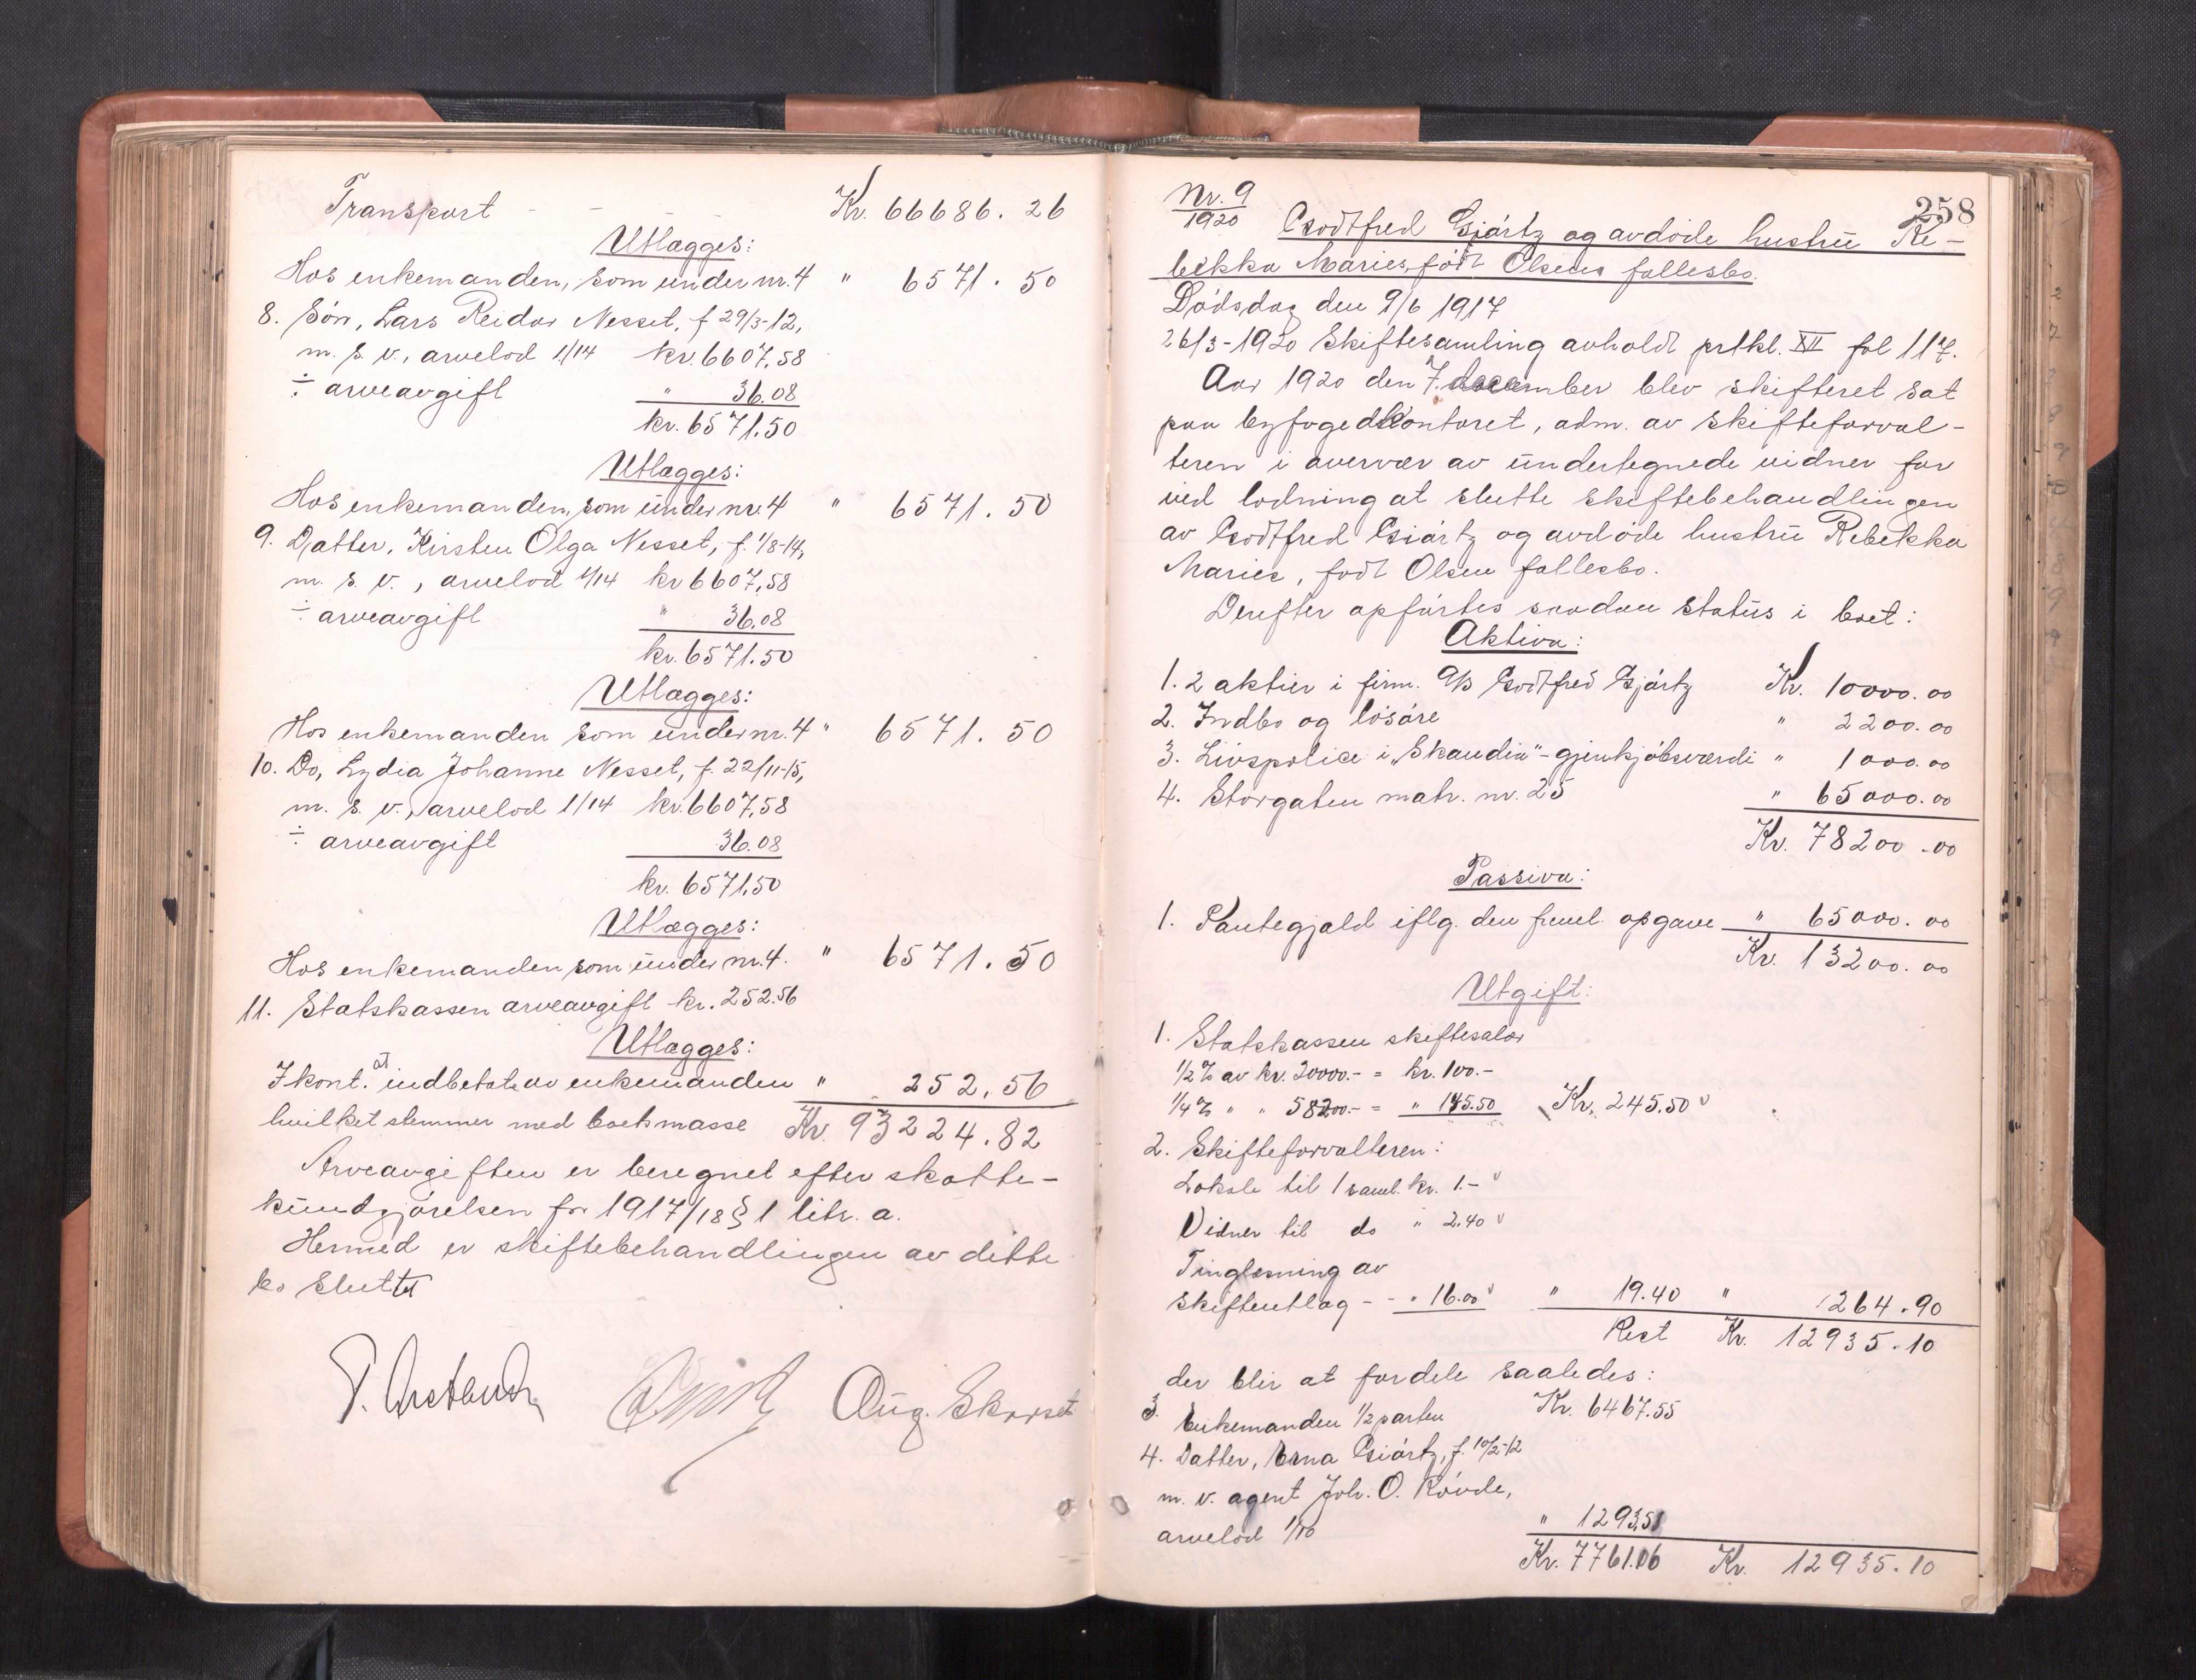 Transport - - - Kr. 66686.26
Utlægges:
Hos enkemanden, som under nr. 4 " 6571.50
8. Søn, Lars Reidar Nesset, f 29/3-12,
m. s. v., arvelod 1/14 kr. 6607,58
÷ arveavgift " 36.08
kr. 6571.50
Utlægges:
Hos enkemanden, som under nr. 4 " 6571.50
9. Datter, Kirsten Olga Nesset, f. 1/8-14,
m. s. v., arvelod 1/14 kr 6607,58
÷ arveavgift " 36.08
kr. 6571.50
Utlægges:
Hos enkemanden som under nr. 4 " 6571.50
10. Do, Lydia Johanne Nesset, f. 22/11-15,
m. s. v., arvelod 1/14 kr. 6607,58
÷ arveavgift 36.08
kr. 6571,50
Utlægges:
Hos enkemanden som under nr. 4. " 6571.50
11. Statskassen arveavgift kr. 252.56
Utlægges:
I kont. at indbetale av enkemanden " 252.56
hvilket stemmer med boets masse Kr. 93224.82
Arveavgiften er beregnet efter skatte-
kundgjørelsen for 1917/18 § 1 litr. a.
Hermed er skiftebehandlingen av dette
bo sluttet
Aug. Skorset
258
Nr. 9
1920
Godtfred Gjørtz og avdøde hustru Re-
bekka Maries, født Olsens fællesbo.
Dødsdag den 9/6 1917
26/3-1920 Skiftesamling avholdt prtkl. XII fol 117.
Aar 1920 den 7. december blev skifteret sat
paa byfogedkontoret, adm. av skifteforval-
teren i overvær av undertegnede vidner for
ved lodning at slutte skiftebehandlingen
av Godtfred Gjørtz og avdøde hustru Rebekka
Maries, født Olsen fællesbo.
Derefter opførtes saadan status i boet:
Aktiva:
1. 2 aktier i firm. A/S Godtfred Gjørtz Kr. 10000.00
2. Indbo og løsøre " 2200.00
3. Livspolice i "Skandia" - gjenkjøbsværdi " 1000.00
4. Storgaten matr. nr. 25 " 65000.00
Kr. 78200.00
Passiva:
1. Pantegjæld iflg. den freml. opgave " 65000.00
Kr. 13200.00
Utgift:
1. Statskassen skiftesalær
1/2 % av kr. 20000.- = kr. 100.-
1/4 % " " 58200.- = " 145.50 Kr. 245.50
2. Skifteforvalteren:
Lokale til 1 saml. kr. 1.-
Vidner til do " 2.40
Tinglæsning av
skifteutlæg - - " 16.00 " 19.40 " 264.90
Rest Kr. 12935.10
der blir at fordele saaledes:
3. Enkemanden 1/2 parten Kr. 6467.55
4. Datter, Erna Gjørtz, f. 10/2-12
m. v. agent Joh. O. Røvde,
arvelod 1/10 " 1293,51
Kr. 7761.06 Kr. 12935.10